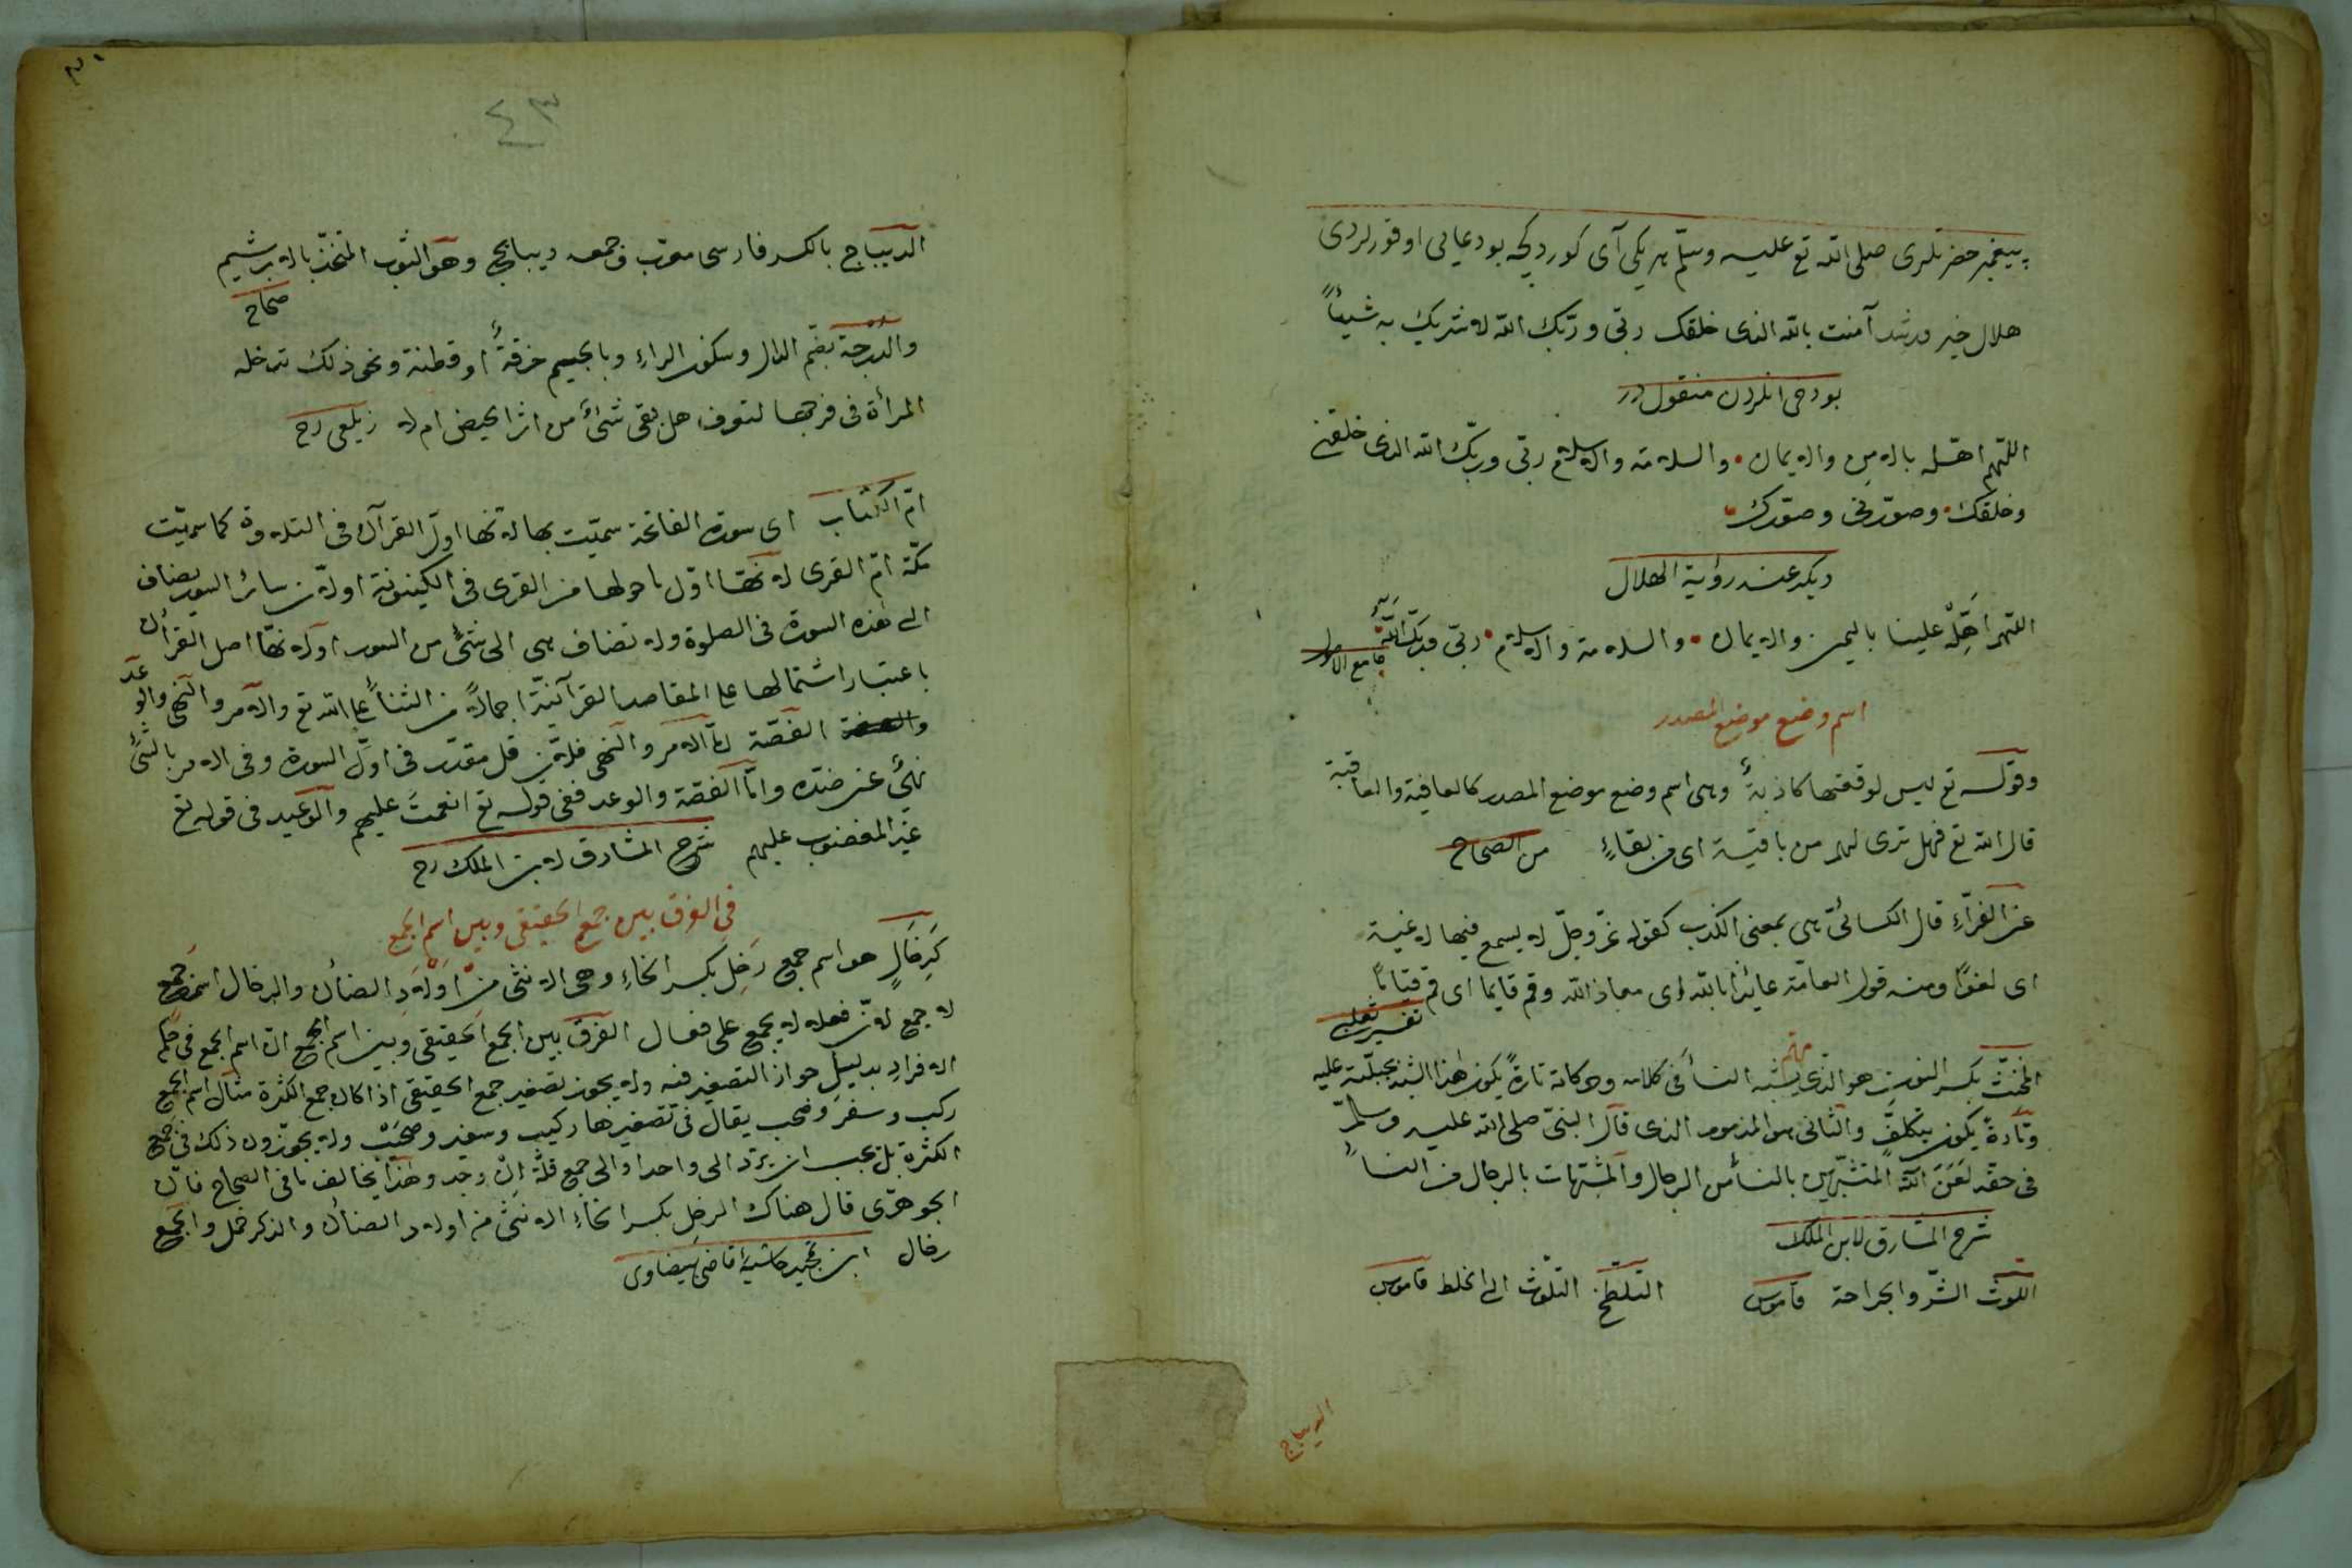 پيغمبر حضرتلرى صلى الله تع عليه وسلم هر يكى آى كوردكجه بودعايى اوقورلردى
هلال خير ورشد آمنت بالله الذى خلقك ربى وربك الله لا شريك به شيئاً
بودخى انلردن منقولدر
اللهم اهله بالامن والايمان والسلامة والاسلام ربى وربك الله الذى خلقنى
وخلقك وصورنى وصورك
ديكر عند رؤية الهلال
اللهم اهله علينا باليمن والايمان والسلامة والاسلام ربى وربك الله
جامع الاصول
اسم وضع موضع المصدر
وقوله تع ليس لوقعتها كاذبة وهى اسم وضع موضع المصدر كالعافية والعاقبة
قال الله تع فهل ترى لهم من باقية اى من بقاءٍ من الصحاح
عن الفراء قال الكسائى هى بمعنى الكذب كقوله عز وجل لا يسمع فيها لاغية
اى لغوًا ومنه قول العامة عائذا بالله اى معاذ الله وقم قايما اى قم قياماً
تفسير ثعلبى
مهم
المخنث بكسر النون هو الذى يشبه النسأ فى كلامه وحركاته تارةً يكون هذا الشبه بجبلية عليه
وتارةً يكون بتكلف والثانى هو المذموم الذى قال النبى صلى الله عليه وسلم
فى حقه لَعَنَ الله المتشبهين بالنسأ من الرجال والمشبهات بالرجال من النسأ
شرح المشارق لابن الملك
اللوث الشر والجراحة قاموس التلطخ التلوث اى الخلط قاموس
الديباج
٤٣
الديباج بالكسر فارسى معرب وجمعه ديبابيج وهو الثوب المتخذ بالابرشيم
صحاح
والدرجة بضم الدال وسكون الراء وبالجيم خرقة او قطنة ونحو ذلك تدخله
المرأة فى فرجها لتعرف هل بقى شئ من اثر الحيض ام لا زيلعى رح
ام الكتاب اى سورة الفاتحة سميت بها لانها اول القرآن فى التلاوة كما سميت
مكة ام القرى لانها اول ما حولها من القرى فى الكينونة اولان سائر السور يضاف
الى هذه السورة فى الصلوة ولا تضاف هى الى شئ من السور اولانها اصل القرأن
باعتبار اشتمالها على المقاصد القرآنية اجمالاً من الثنأ على الله تع والامر والنهى والوعد
والقصة اما الامر والنهى فلان قل مقدر فى اول السورة وفى الامر بالشئ
نهى عن ضده واما القصة والوعد ففى قوله تع انعمت عليهم والوعيد فى قوله تع
غير المغضوب عليهم شرح المشارق لابن الملك رح
فى الفرق بين جمع الحقيقى وبين اسم الجمع
كَرِخَالٍ هو اسم جمع رَخِل بكسر الخاء وهى الانثى من اولاد الضأن والرخال اسم جمع
لا جمع لان فعله لا يجمع على فعال الفرق بين الجمع الحقيقى وبين اسم الجمع ان اسم الجمع فى حكم
الافراد بدليل جواز التصغير فيه ولا يجوز تصغير جمع الحقيقى اذا كان جمع الكثرة مثال اسم الجمع
ركب وسفر وصحب يقال فى تصغيرها ركيب وسفير وصحيب ولا يجوزون ذلك فى جمع
الكثرة بل يجب ان يرد الى واحد او الى جمع قلة ان وجد وهذا يخالف ما فى الصحاح فان
الجوهرى قال هناك الرخل بكسر الخاء الانثى من اولاد الضأن والذكر حمل والجمع
رخال ابن تمجيد حاشيۀ قاضى بيضاوى